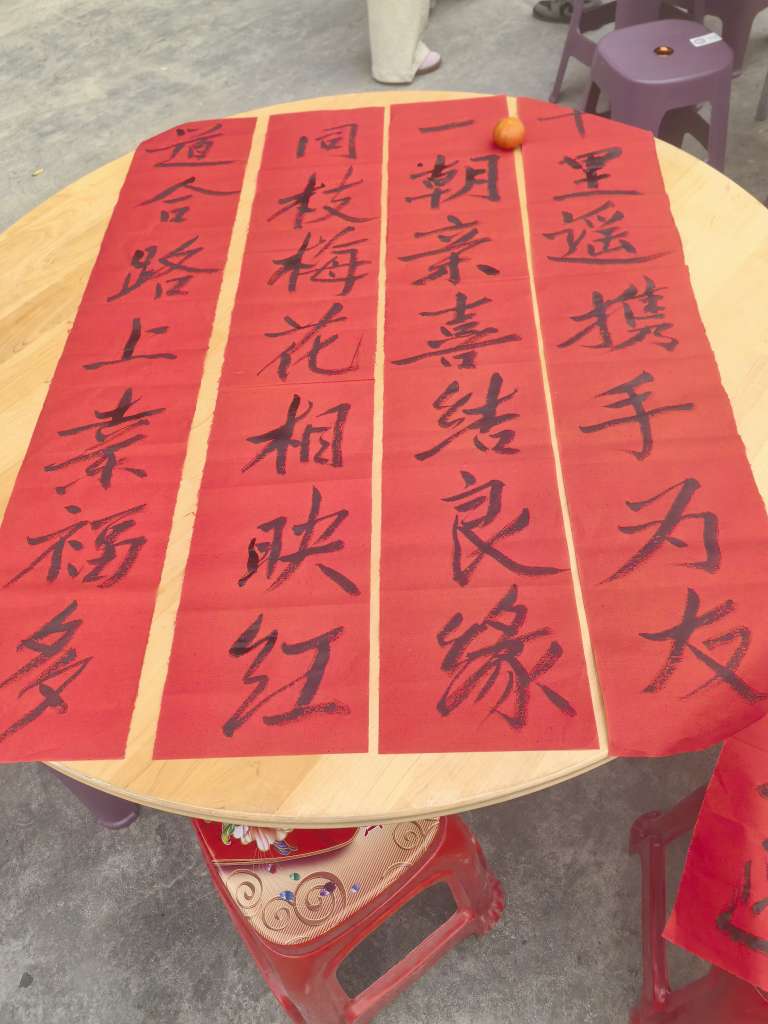 十里遥携手为友
一朝亲喜结良缘
同枝梅花相映红
道合路上幸福多